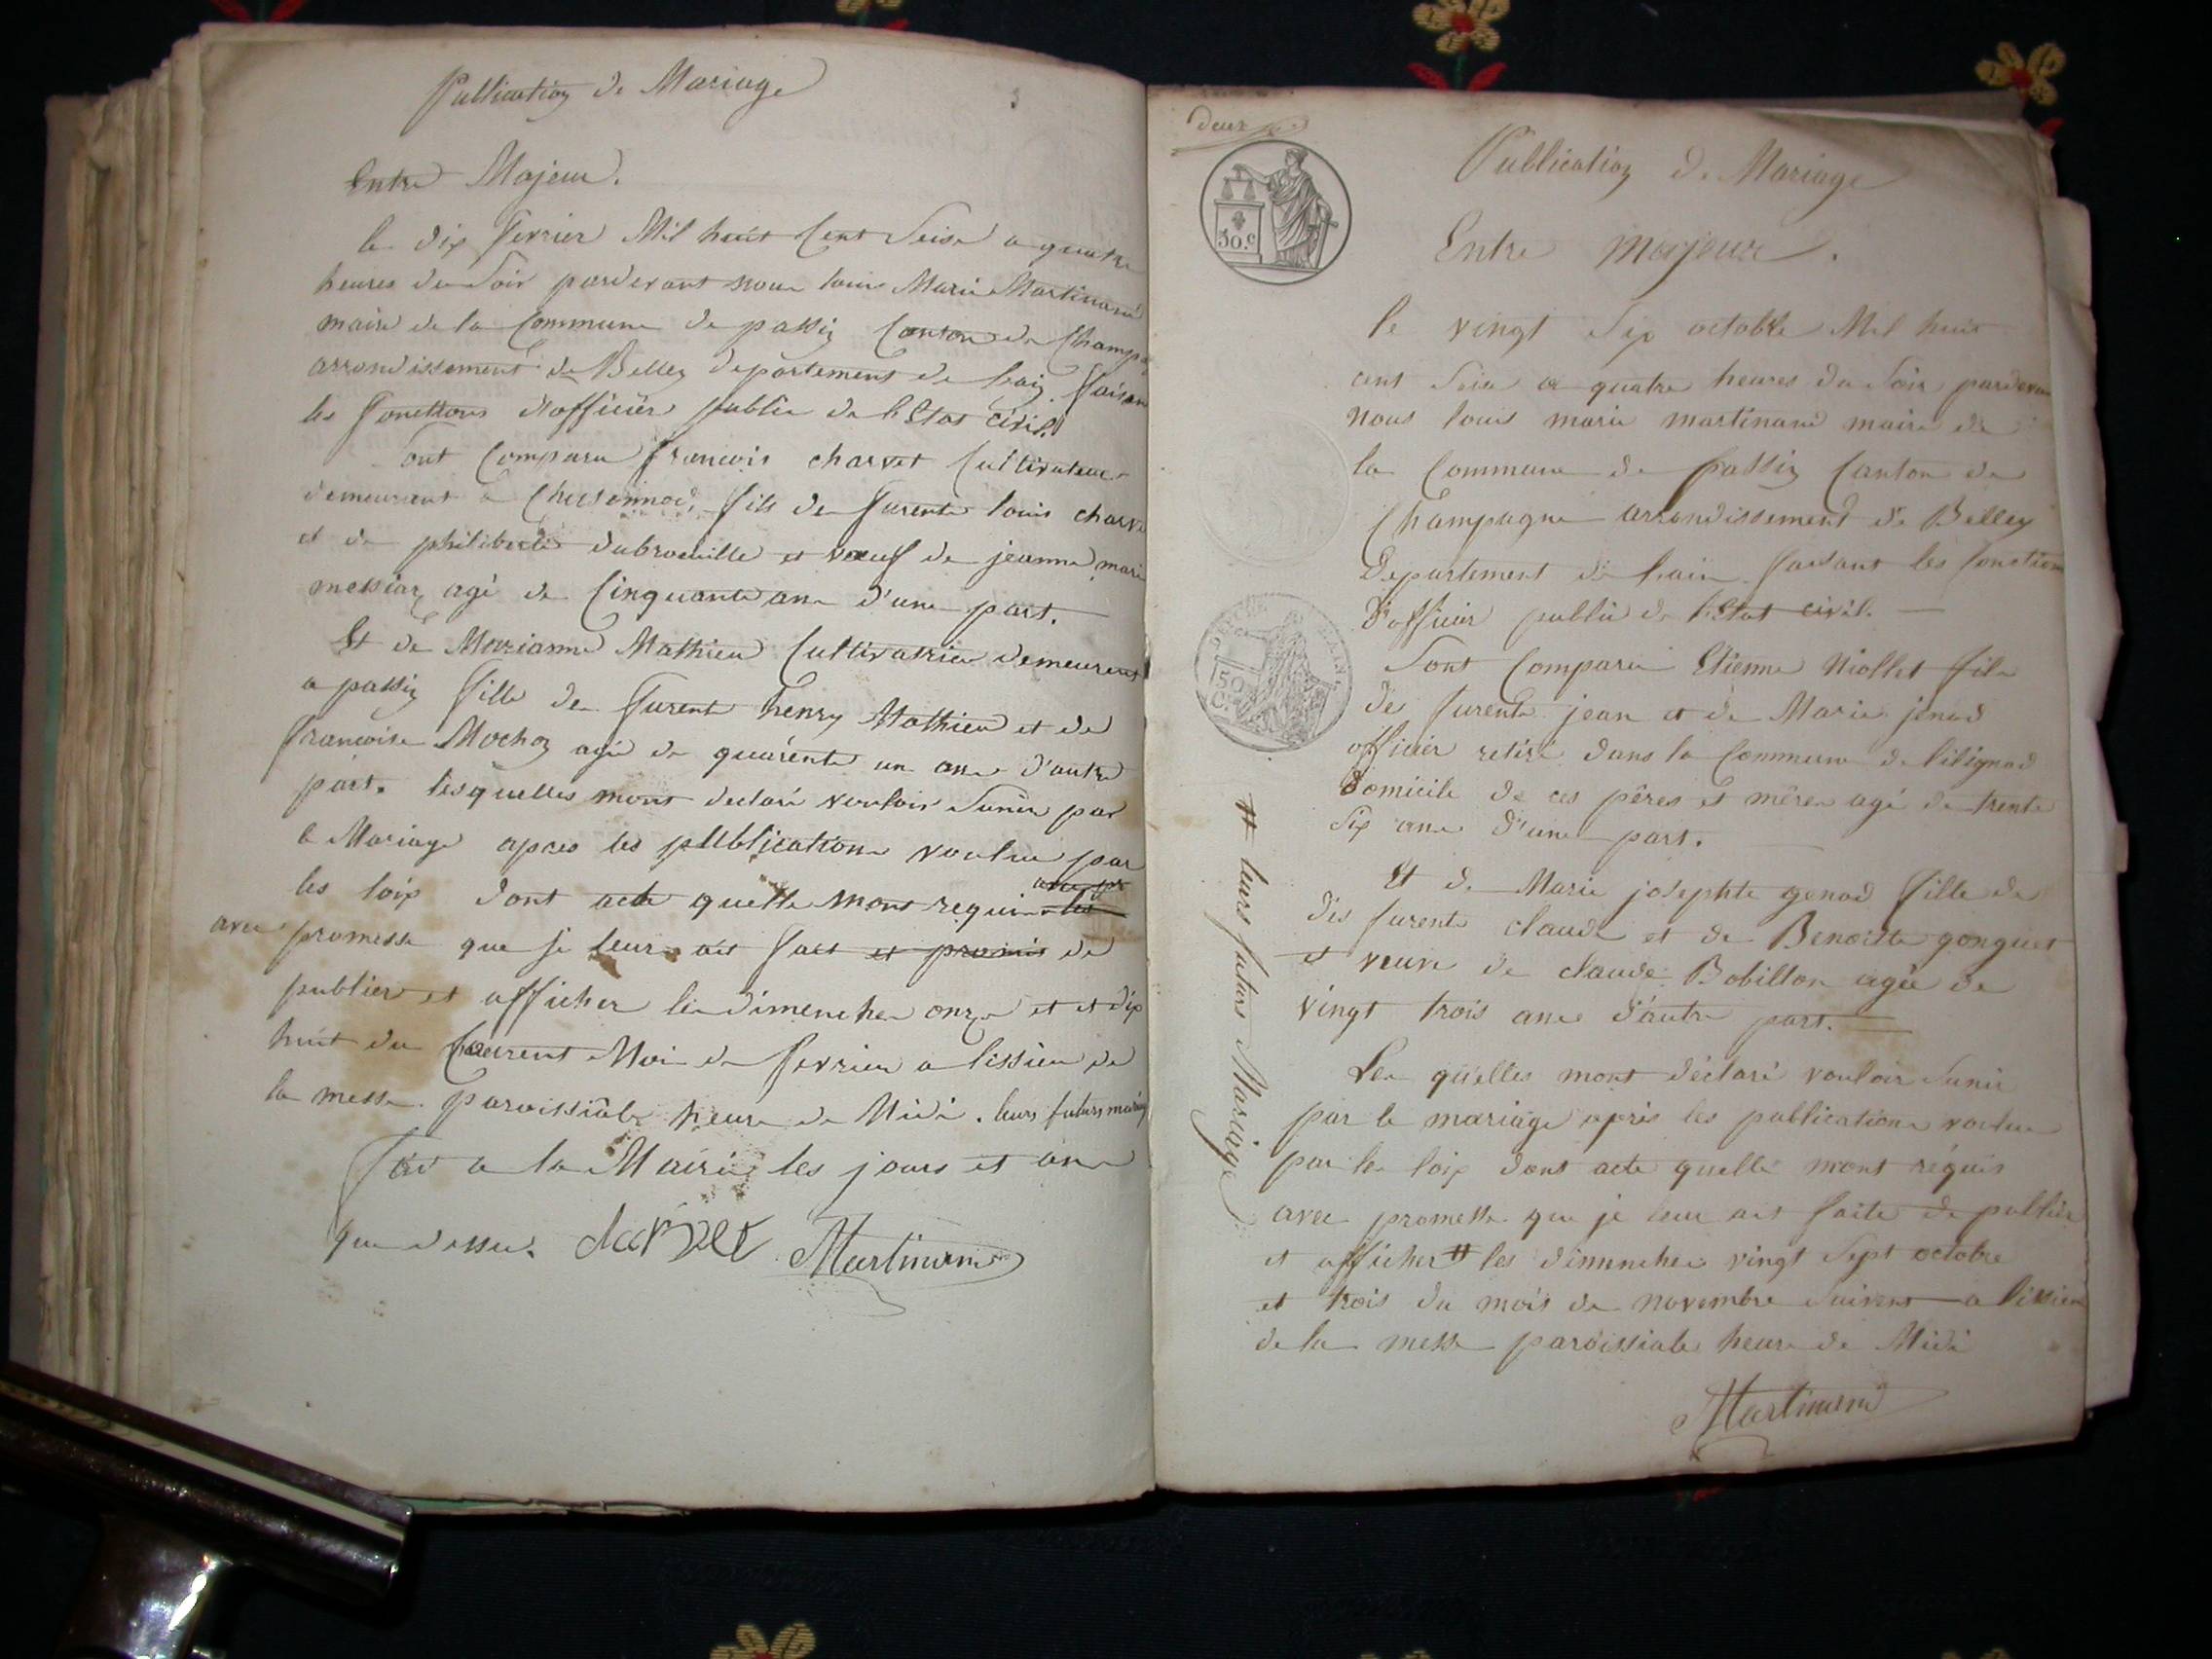 Publication de Mariage
Entre Majeur.
le dix fevrier Mil huit Cent Seise a quatre
heures du Soir pardevant nous louis Marie Martinand
maire de la Commune de passin Canton de Champa
arrondissement de Belley departement de lain faisan
les fonctions d'officiér public de l'Etat civil.
Sont Comparu francois charvet Cultivateur
demeurent a fils de furent louis charve
et de philiberte dubrouille et vœuf de jeanne marie
agé de Cinquante ans d'une part.
Et de Marianne Mathieu Cultivatrice demeurent
a passin fille de furent henry Mathieu et de
francoise Mochon agé de quarente un ans d'autre
part. lesquelles mont declaré vouloir Sunir par
le Mariage apres les publications voulue par
les loix dont acte quelle mont requis les
avec promesse que je leurs ait fait et promis de
publier et afficher les dimenches onze et et dix
huit du Courent Moi de fevrier a lissieu de
la messe paroissiale heure de Midi. leurs futurs mariag
fait a la Mairie les jours et ans
que dessu. charvet Martinand
deux
Publication de Mariage
Entre majeur.
30.c
le vingt Six octobre Mil huit
cent Seise a quatre heures du Soir pardevan
nous louis marie martinand maire de
la Commune de passin Canton de
Champagne arrondissement de Belley
Departement de lain faisant les fonction
d'officier public de l'Etat civil.
50 C.
Sont Comparu Etienne Niollet fils
de furent jean et de Marie jenod
officier retiré dans la Commune de lilignod
domicile de ces péres et méres agé de trente
Six ans d'une part.
Et de Marie josephte genod fille de
dis furent claude et de Benoitte gonguet
et veuve de claude Bobillon agée de
vingt trois ans d'autre part.
Les quelles mont déclaré vouloir Sunir
par le mariage aprés les publications voulue
par les loix dont acte quelle mont réquis
avec promesse que je leur ait faite de publier
et afficher # les dimenches vingt Sept octobre
et trois du mois de novembre Suivent a lissieu
de la messe paroissiale heure de Midi
Martinand
# leurs futurs Mariage